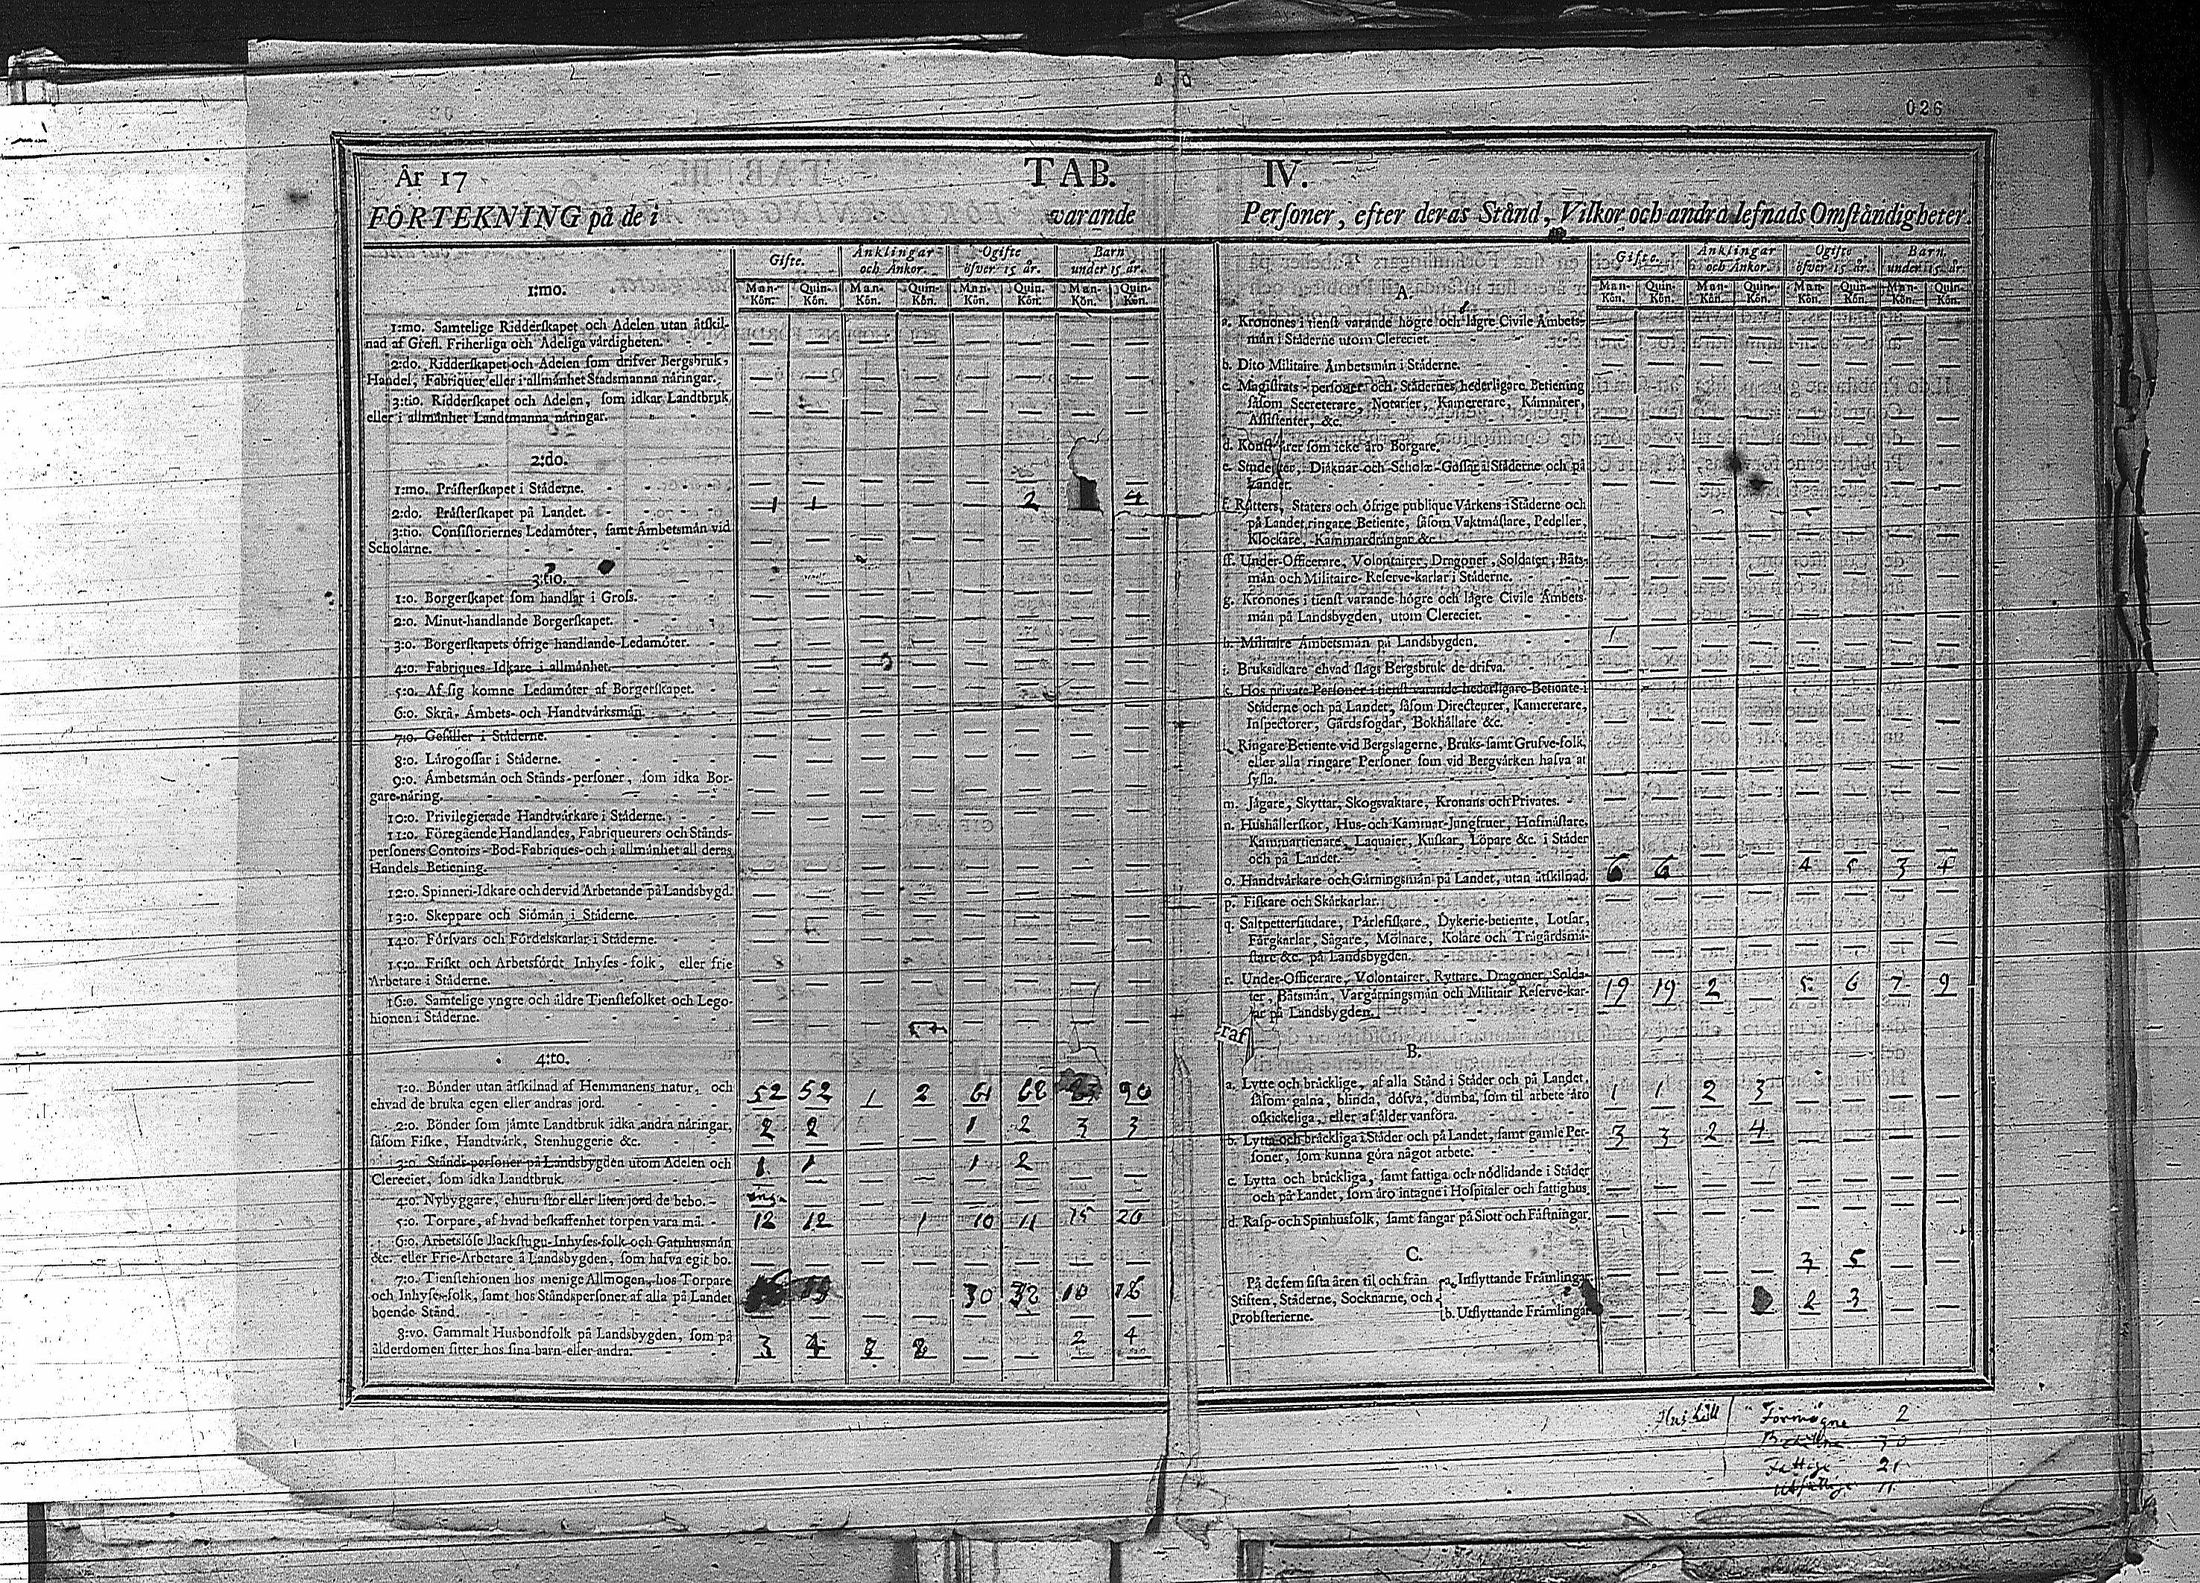 026
År 17 TAB. IV.
FÖRTEKNING på de i varande Personer, efter deras Stånd, Vilkor och andra lefnads Omständigheter.
1:mo.
Gifte. Änklingar och Änkor. Ogifte öfver 15 år. Barn under 15 år.
Man-Kön. Quin-Kön. Man-Kön. Quin-Kön. Man-Kön. Quin-Kön. Man-Kön. Quin-Kön.
1:mo. Samtelige Ridderskapet och Adelen utan åtskil-
nad af Grefl. Friherliga och Adeliga värdigheten. — — — — — — — —
2:do. Ridderskapet och Adelen som drifver Bergsbruk,
Handel, Fabriquer eller i allmänhet Stadsmanna näringar. — — — — — — — —
3:tio. Ridderskapet och Adelen, som idkar Landtbruk
eller i allmänhet Landtmanna näringar. — — — — — — — —
2:do.
1:mo. Prästerskapet i Städerne. — — — — — — —
2:do. Prästerskapet på Landet. 1 1 2 4
3:tio. Consistoriernes Ledamöter, samt Ämbetsmän vid
Scholarne. — — — — — — — —
3:tio.
1:o. Borgerskapet som handlar i Gross. — — — — — — — —
2:o. Minut-handlande Borgerskapet. — — — — — — — —
3:o. Borgerskapets öfrige handlande Ledamöter. — — — — — — — —
4:o. Fabriques-Idkare i allmänhet. — — — — — — — —
5:o. Af sig komne Ledamöter af Borgerskapet. — — — — — — — —
6:o. Skrå- Ämbets- och Handtvärksmän. — — — — — — — —
7:o. Gesäller i Städerne. — — — — — — — —
8:o. Lärogossar i Städerne. — — — — — — — —
9:o. Ämbetsmän och Stånds-personer, som idka Bor-
gare-näring. — — — — — — — —
10:o. Privilegierade Handtvärkare i Städerne. — — — — — — — —
11:o. Föregående Handlandes, Fabriqueurers och Stånds-
personers Contoirs- Bod- Fabriques- och i allmänhet all deras
Handels Betiening. — — — — — — — —
12:o. Spinneri-Idkare och dervid Arbetande på Landsbygd. — — — — — — — —
13:o. Skeppare och Siömän i Städerne. — — — — — — — —
14:o. Försvars och Fördelskarlar i Städerne. — — — — — — — —
15:o. Friskt och Arbetsfördt Inhyses-folk, eller frie
Arbetare i Städerne. — — — — — — — —
16:o. Samtelige yngre och äldre Tienstefolket och Lego-
hionen i Städerne. — — — — — — — —
4:to.
1:o. Bönder utan åtskilnad af Hemmanens natur, och
ehvad de bruka egen eller andras jord. 52 52 1 2 61 68 90
2:o. Bönder som jämte Landtbruk idka andra näringar,
såsom Fiske, Handtvärk, Stenhuggerie &c. 2 2 — — 1 2 3 3
3:o. Stånds-personer på Landsbygden utom Adelen och
Clereciet, som idka Landtbruk. 1 1 — — 1 2 — —
4:o. Nybyggare, ehuru stor eller liten jord de bebo.
5:o. Torpare, af hvad beskaffenhet torpen vara må. 12 12 1 10 11 15 20
6:o. Arbetslöse Backstugu- Inhyses-folk och Gatuhusmän
&c. eller Frie-Arbetare å Landsbygden, som hafva eget bo. — — — — — — — —
7:o. Tienstehionen hos menige Allmogen, hos Torpare
och Inhyses-folk, samt hos Ståndspersoner af alla på Landet
boende Stånd. 30 32 10
8:vo. Gammalt Husbondfolk på Landsbygden, som på
ålderdomen sitter hos sina barn eller andra. 3 4 3 8 — — 2 4
Gifte. Änklingar och Änkor. Ogifte öfver 15 år. Barn. under 15 år.
Man-Kön. Quin-Kön. Man-Kön. Quin-Kön. Man-Kön. Quin-Kön. Man-Kön. Quin-Kön.
A.
a. Kronones i tienst varande högre och lägre Civile Ämbets-
män i Städerne utom Clereciet. — — — — — — — —
b. Dito Militaire Ämbetsmän i Städerne. — — — — — — — —
c. Magistrats-personer och Städernes hederligare Betiening
såsom Secreterare, Notarier, Kamererare, Kämnärer,
Assistenter, &c. — — — — — — — —
d. Konstnärer som icke äro Borgare. — — — — — — — —
e. Studenter, Diäknar och Schole-Gossar i Städerne och på
Landet. — — — — — — — —
f. Rätters, Staters och öfrige publique Värkens i Städerne och
på Landet ringare Betiente, såsom Vaktmästare, Pedeller,
Klockare, Kammardrängar &c. — — — — — — — —
ff. Under-Officerare, Volontairer, Dragoner, Soldater, Båts-
män och Militaire-Reserve-karlar i Städerne. — — — — — — — —
g. Kronones i tienst varande högre och lägre Civile Ämbets-
män på Landsbygden, utom Clereciet. — — — — — — — —
h. Militaire Ämbetsmän på Landsbygden. — — — — — — — —
i. Bruksidkare ehvad slags Bergsbruk de drifva. — — — — — — — —
k. Hos privata Personer i tienst varande hederligare Betiente i
Städerne och på Landet, såsom Directeurer, Kamererare,
Inspectorer, Gårdsfogdar, Bokhållare &c. — — — — — — — —
l. Ringare Betiente vid Bergslagerne, Bruks- samt Grufve-folk,
eller alla ringare Personer som vid Bergvärken hafva at
syssla. — — — — — — — —
m. Jägare, Skyttar, Skogsvaktare, Kronans och Privates. — — — — — — — —
n. Hushållerskor, Hus- och Kammar-Jungfruer, Hofmästare,
Kammartienare, Laquaier, Kuskar, Löpare &c. i Städer
och på Landet. — — — — — — — —
o. Handtvärkare och Gärningsmän på Landet, utan åtskilnad. 6 6 4 5 3 4
p. Fiskare och Skärkarlar. — — — — — — — —
q. Saltpettersiudare, Pärlefiskare, Dykerie-betiente, Lotsar,
Färgkarlar, Sågare, Mölnare, Kolare och Trägårdsmä-
stare &c. på Landsbygden. — — — — — — — —
r. Under-Officerare, Volontairer, Ryttare, Dragoner, Solda-
ter, Båtsmän, Vargärningsmän och Militair Reserve-kar-
lar på Landsbygden. 19 19 2 — 5 6 7 9
raf
B.
a. Lytte och bräcklige, af alla Stånd i Städer och på Landet,
såsom galna, blinda, döfva, dumba, som til arbete äro
oskickeliga, eller af ålder vanföra. 1 1 2 3 — — — —
b. Lytta och bräckliga i Städer och på Landet, samt gamle Per-
soner, som kunna göra något arbete. 3 3 2 4 — — — —
c. Lytta och bräckliga, samt fattiga och nödlidande i Städer
och på Landet, som äro intagne i Hospitaler och fattighus. — — — — — — — —
d. Rasp- och Spinhusfolk, samt fångar på Slott och Fästningar. — — — — — — — —
C.
På de fem sista åren til och från
Stiften, Städerne, Socknarne, och
Probsterierne.
a. Inflyttande Främlingar — — — — 3 5 — —
b. Utflyttande Främlingar — — 2 3 — —
Hushåll Förmögne 2
30
Fattige 21
Utfattige 11